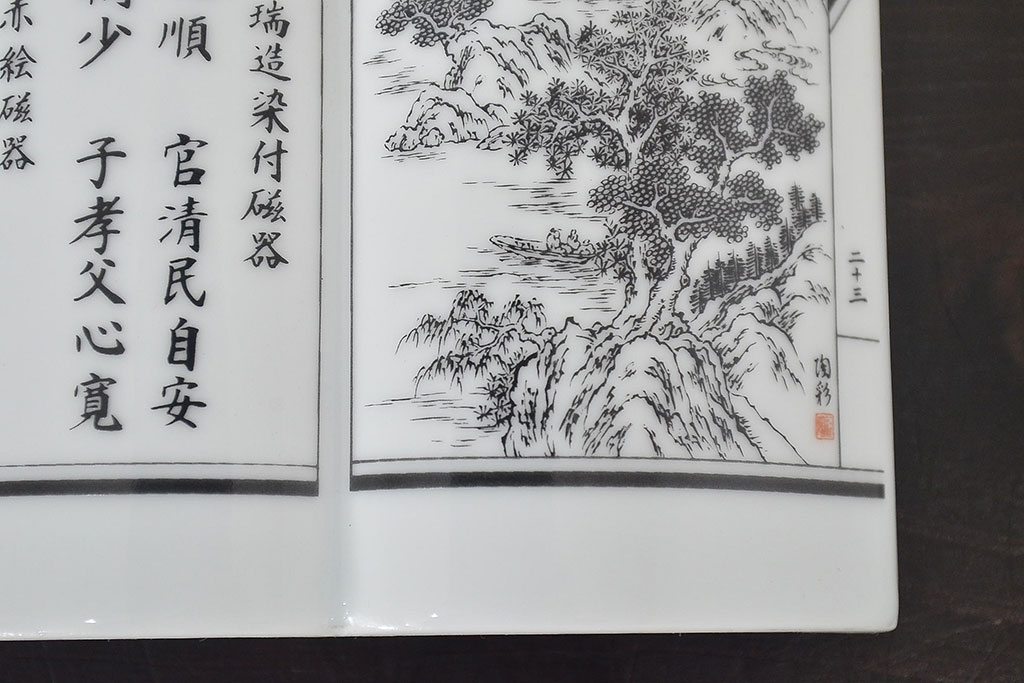 二十三
陶彩
瑞造染付磁器
順 官清民自安
少 子孝父心寬
赤絵磁器